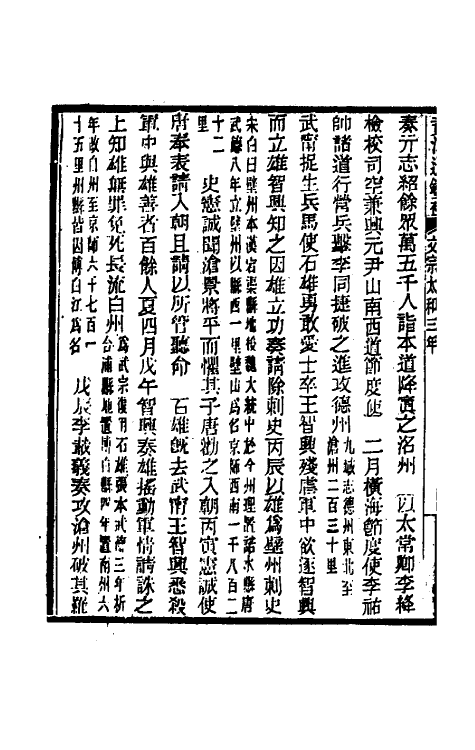 文宗太和三年
奏元志紹餘眾萬五千人詣本道降寘之洺州　以太常卿李絳
檢校司空兼興元尹山南西道節度使　二月橫海節度使李祐
帥諸道行營兵擊李同捷破之進攻德州九域志德州東北至滄州二百三十里
武甯捉生兵馬使石雄勇敢愛士卒王智興殘虐軍中欲逐智興
而立雄智興知之因雄立功奏請除刺史丙辰以雄爲壁州刺史
宋白曰壁州本漢宕渠縣地後魏大統中於今州理置諾水縣唐武德八年立壁州以縣西一里壁山爲名京師西南一千八百二
十二里　史憲誠聞滄景將平而懼其子唐勸之入朝丙寅憲誠使
唐奉表請入朝且請以所管聽命　石雄既去武甯王智興悉殺
軍中與雄善者百餘人夏四月戊午智興奏雄搖動軍情請誅之
上知雄無罪免死長流白州爲武宗復用石雄張本武德三年析合浦縣地置博白縣四年置南州六
年改白州至京師六千七百一十五里州縣皆因博白江爲名　戊辰李載義奏攻滄州破其羅